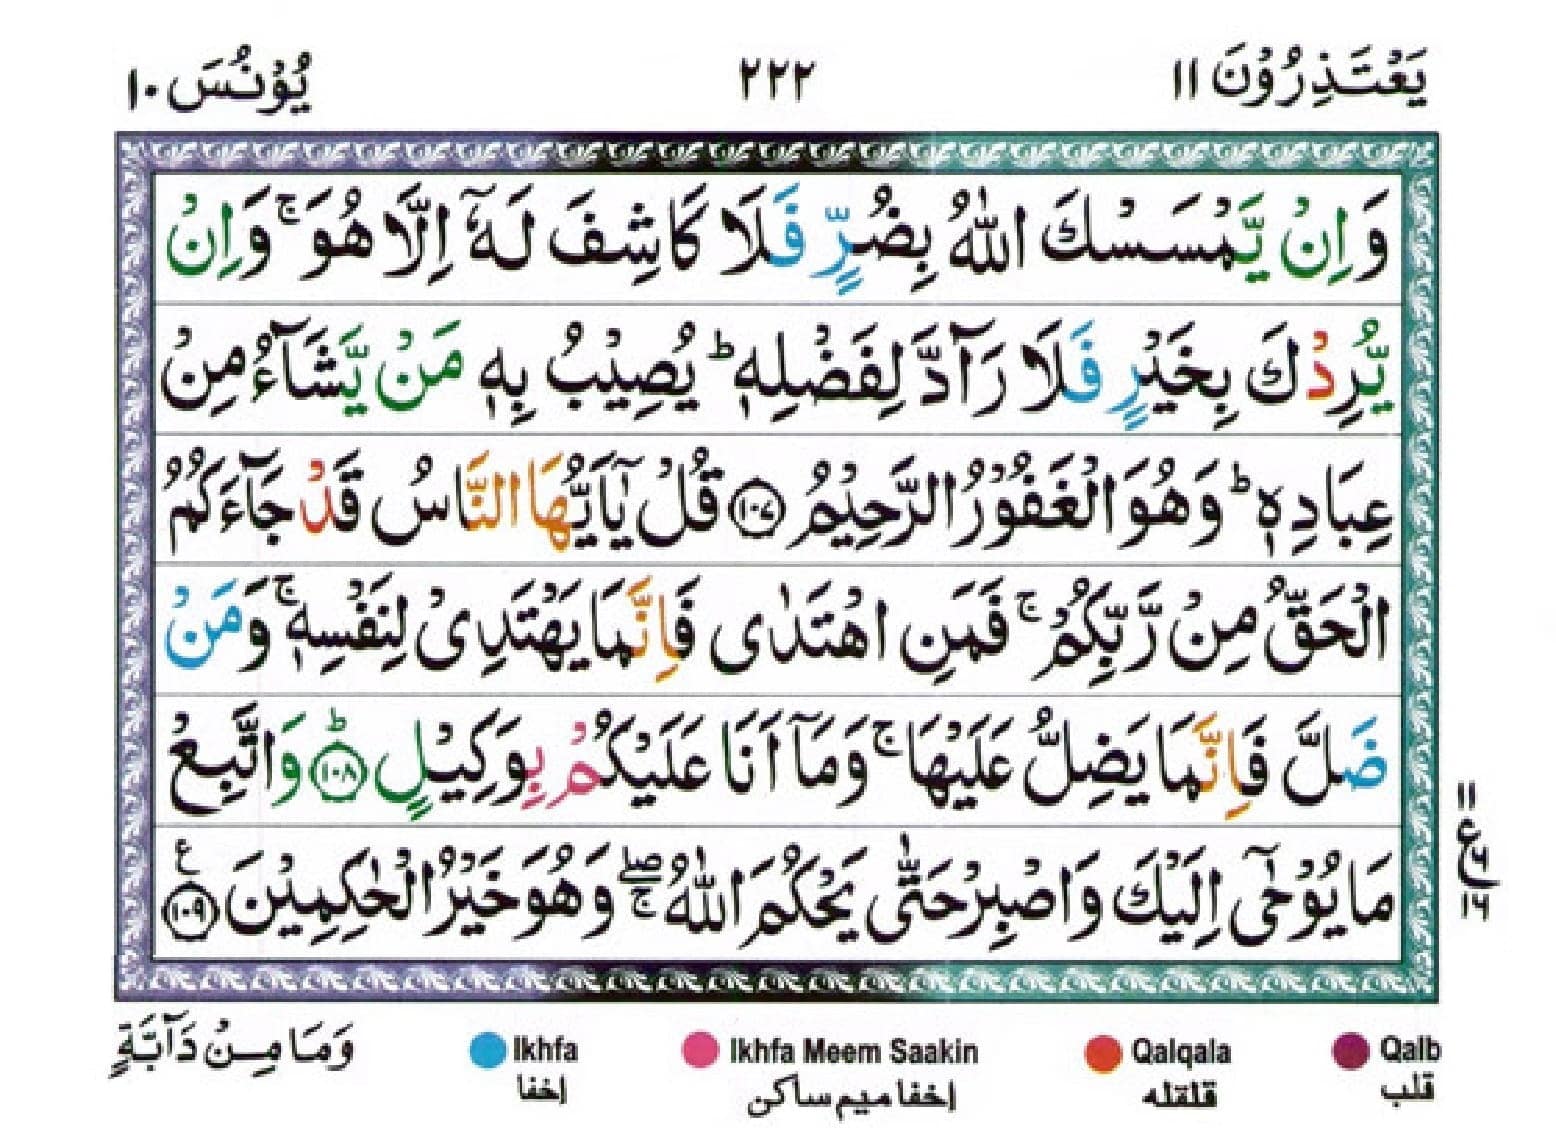 يَعْتَذِرُوْنَ ١١ ٢٢٢ يُوْنُسَ ١٠
وَاِنْ يَّمْسَسْكَ اللّٰهُ بِضُرٍّ فَلَا كَاشِفَ لَهٗٓ اِلَّا هُوَ ۚ وَاِنْ
يُّرِدْكَ بِخَيْرٍ فَلَا رَآدَّ لِفَضْلِهٖ ؕ يُصِيْبُ بِهٖ مَنْ يَّشَآءُ مِنْ
عِبَادِهٖ ؕ وَهُوَ الْغَفُوْرُ الرَّحِيْمُ ﴿١٠٧﴾ قُلْ يٰٓاَيُّهَا النَّاسُ قَدْ جَآءَكُمُ
الْحَقُّ مِنْ رَّبِّكُمْ ۚ فَمَنِ اهْتَدٰى فَاِنَّمَا يَهْتَدِىْ لِنَفْسِهٖ ۚ وَمَنْ
ضَلَّ فَاِنَّمَا يَضِلُّ عَلَيْهَا ۚ وَمَآ اَنَا عَلَيْكُمْ بِوَكِيْلٍ ؕ ﴿١٠٨﴾ وَاتَّبِعْ
مَا يُوْحٰٓى اِلَيْكَ وَاصْبِرْ حَتّٰى يَحْكُمَ اللّٰهُ ۖۚ وَهُوَ خَيْرُ الْحٰكِمِيْنَ ﴿١٠٩﴾ ع
١١
ع
١٦
وَمَا مِنْ دَآبَّةٍ
Ikhfa Ikhfa Meem Saakin Qalqala Qalb
اخفا اخفا میم ساکن قلقله قلب